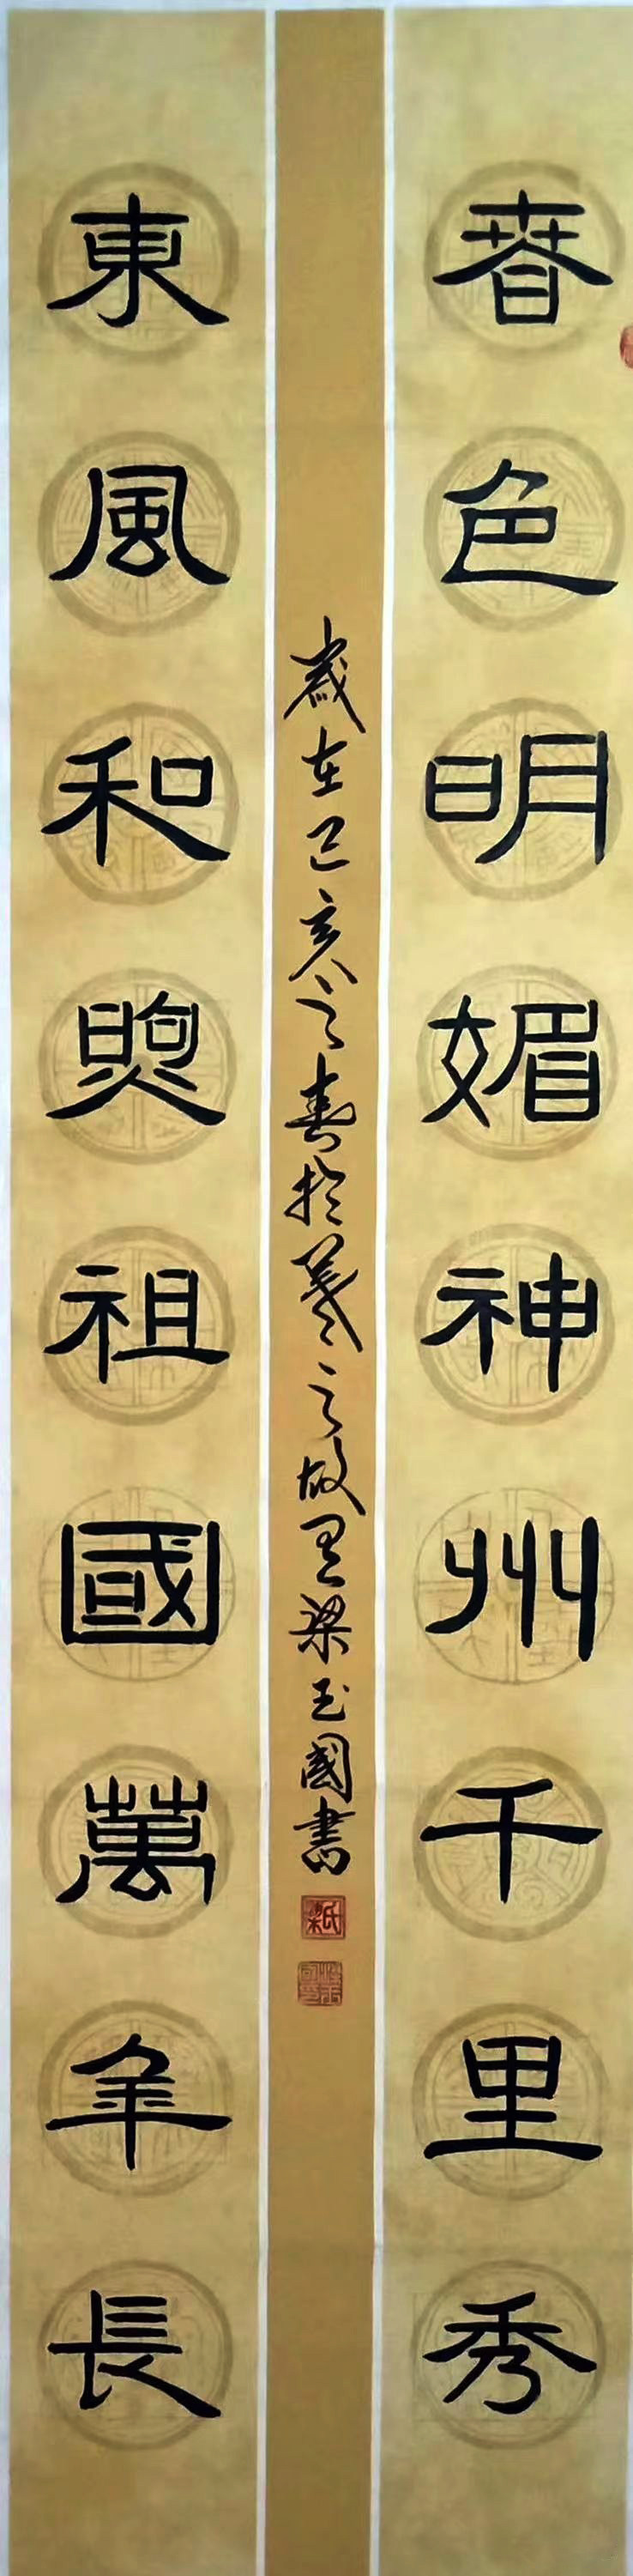 春色明媚神州千里秀
東風和煦祖國萬年長
歲在己亥之春於羲之故里梁玉國書
梁氏